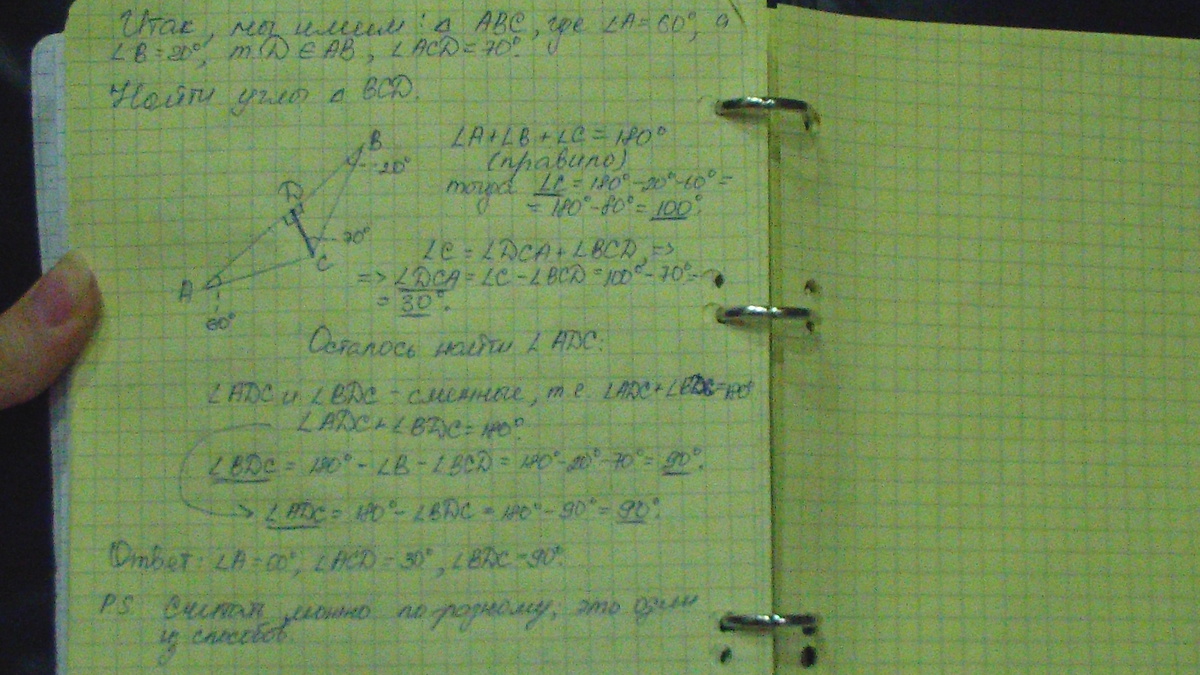 Итак, мы имеем: △ ABC, где ∠A=60°, а
∠B=20°, т.D∈AB, ∠ACD=70°.
Найти углы △ BCD.
∠A+∠B+∠C=180°
(правило)
тогда ∠C=180°-20°-60°=
=180°-80°=100°.
B
20°
D
70°
C
A
60°
∠C=∠DCA+∠BCD, =>
=> ∠DCA=∠C-∠BCD=100°-70°=
=30°.
Осталось найти ∠ADC:
∠ADC и ∠BDC - смежные, т.е. ∠ADC+∠BDC=180°
∠ADC+∠BDC=180°.
∠BDC=180°-∠B-∠BCD=180°-20°-70°=90°.
∠ADC=180°-∠BDC=180°-90°=90°.
Ответ: ∠A=60°, ∠ACD=30°, ∠BDC=90°.
PS Считать можно по-разному, это один
из способов.